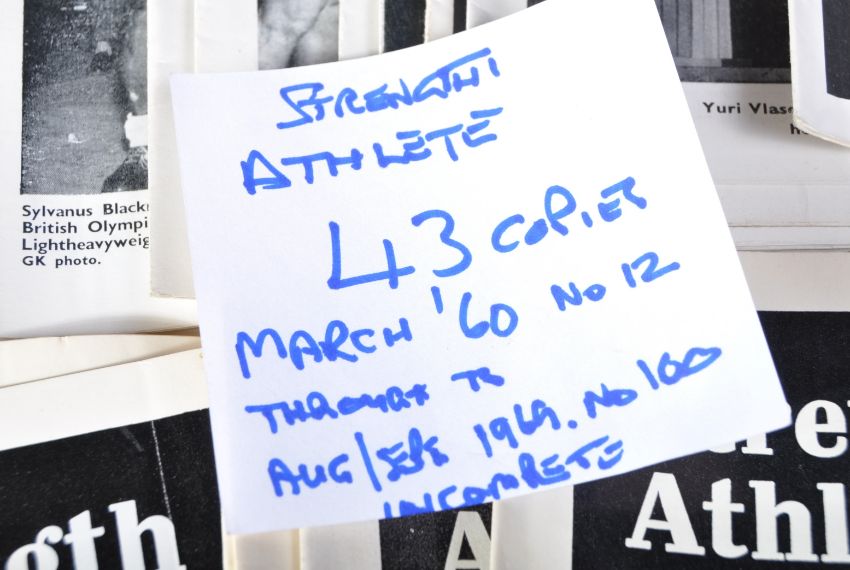 STRENGTH
ATHLETE
43 COPIES
MARCH '60 No 12
THROUGH TO
AUG/SEPT 1969. No 100
INCOMPLETE
Sylvanus Black
British Olympi
Lightheavyweig
GK photo.
Yuri Vlaso
h
gth
A
re
Athl